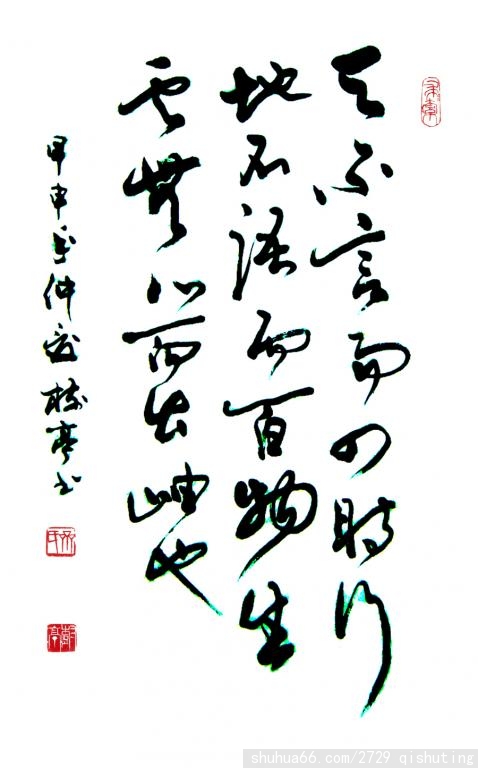 天不言而四時行
地不語而百物生
雲無心而出岫也
甲申年仲夏樹亭書
shuhua66.com/2729 qishuting